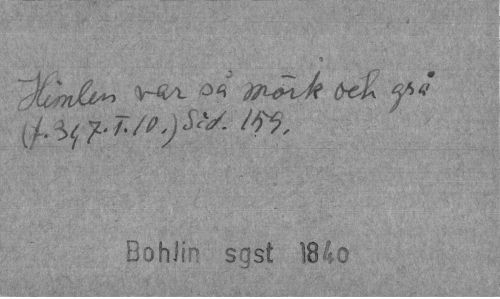 Himlen var så mörk och grå
(f. 347. I. 10.) Sid. 159.
Bohlin sgst 1840